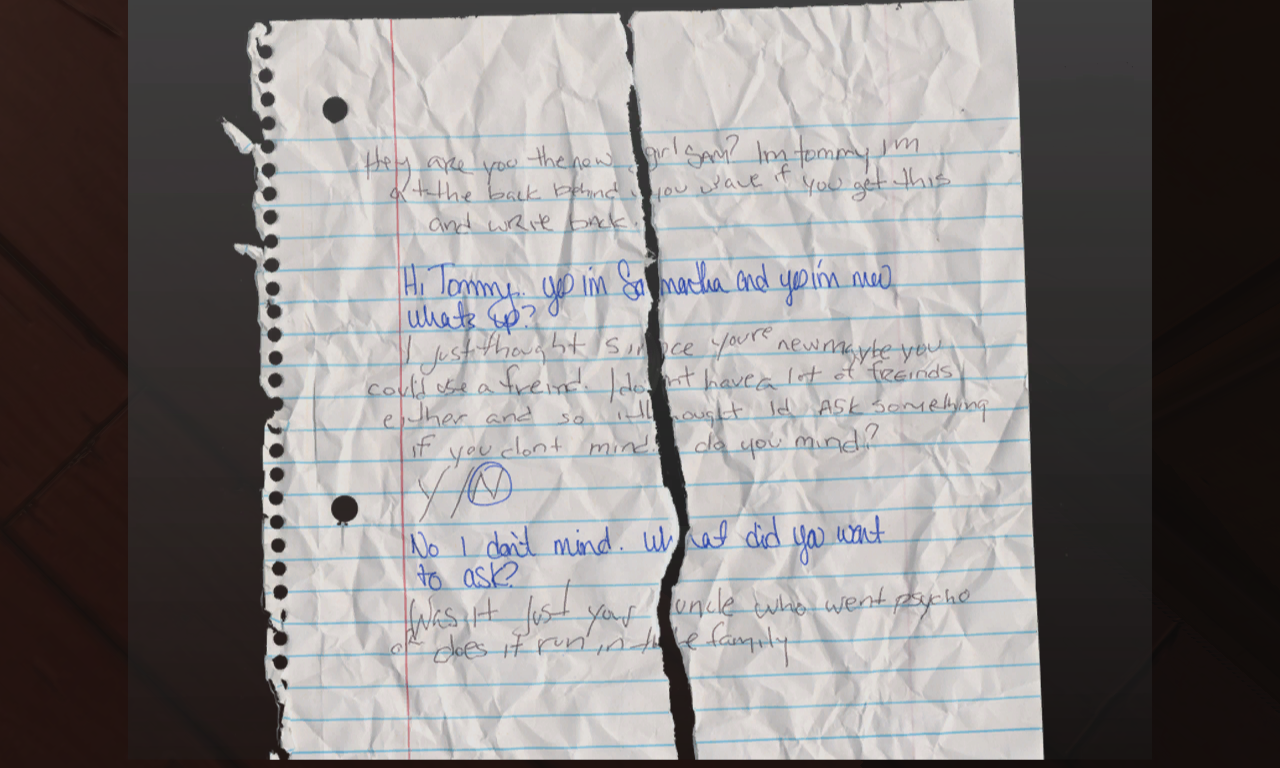 Hey are you the new girl Sam? Im tommy I'm
at the back behind you wave if you get this
and write back.
Hi Tommy.. yes im Samantha and yes im new
whats up?
I just thought since youre new maybe you
could use a freind. I dont have a lot of freinds
either and so i thought Id ASK something
if you dont mind. do you mind?
Y/N
No I don't mind. What did you want
to ask?
Was it just your uncle who went psycho
or does it run in the family